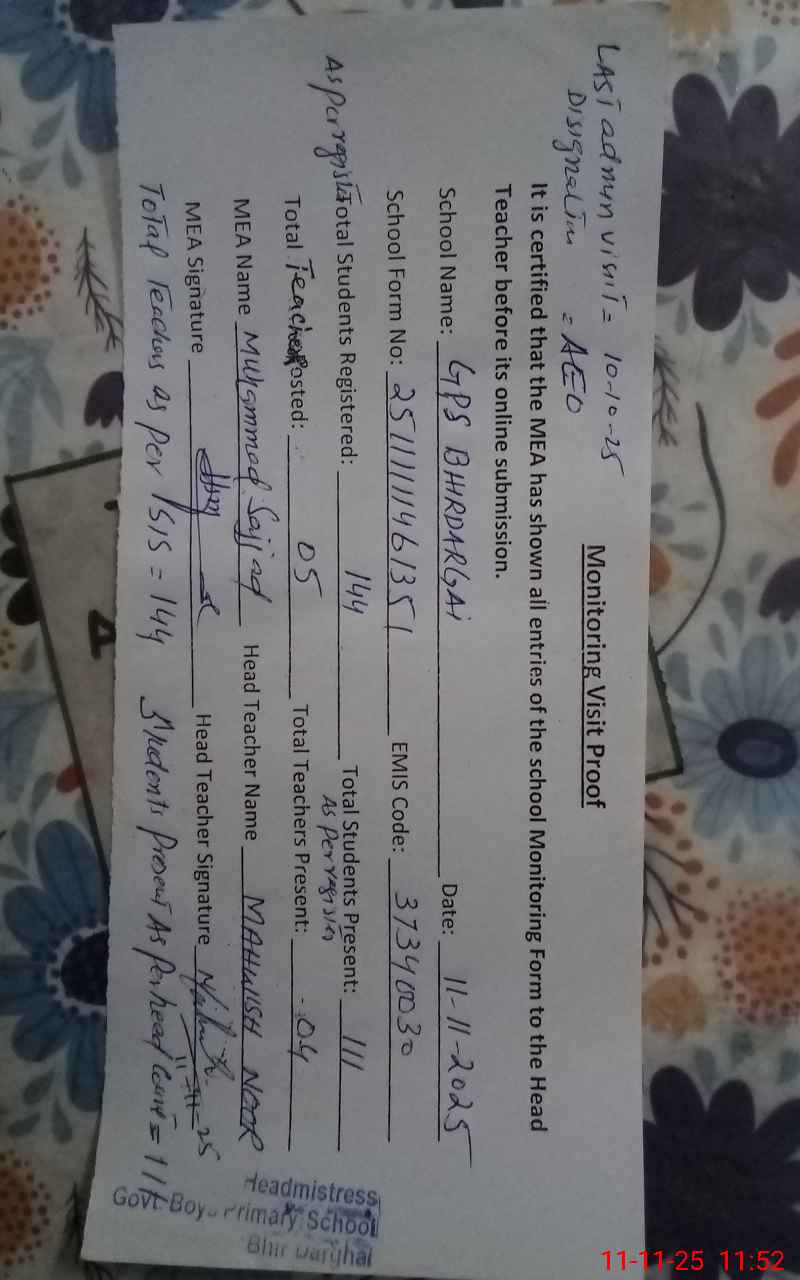 LAST admn visit = 10-10-25
Disignation = AEO
Monitoring Visit Proof
It is certified that the MEA has shown all entries of the school Monitoring Form to the Head
Teacher before its online submission.
School Name: GPS BHIRDARGAi Date: 11-11-2025
School Form No: 25111111461351 EMIS Code: 37340030
As per register Total Students Registered: 144 Total Students Present: 111
As per register
Total Teacher Posted: 05 Total Teachers Present: 04
MEA Name Muhammad Sajjad Head Teacher Name MAHWISH NOOR
MEA Signature Head Teacher Signature
11-11-25
Total Teachers as per ISIS = 144 Students Present As Per head Count =
Headmistress
Govt. Boys Primary School
Bhir Darghai
11-11-25 11:52